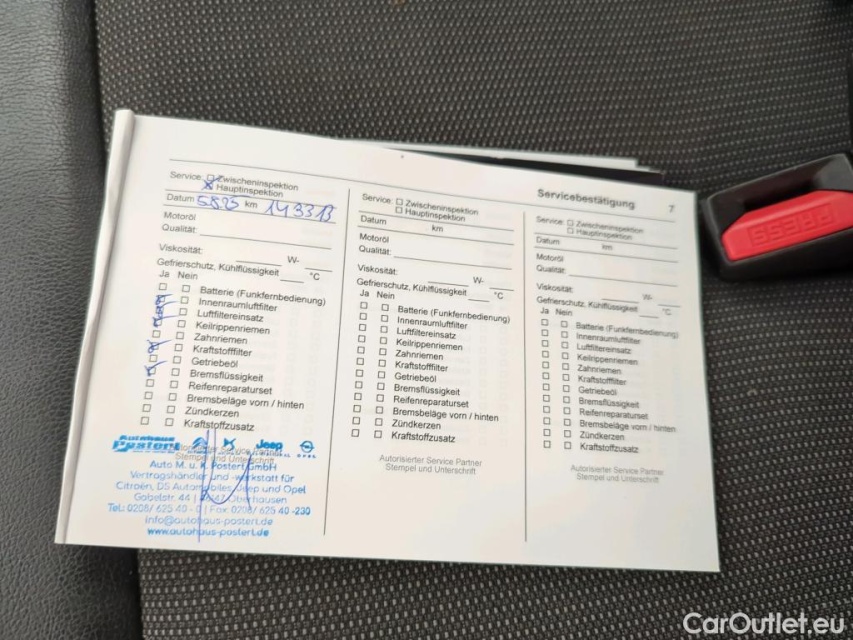 Servicebestätigung 7
Service: Zwischeninspektion
Hauptinspektion
Datum 5.8.25 km 143313
Motoröl
Qualität:
Viskosität: W-
Gefrierschutz, Kühlflüssigkeit °C
Ja Nein
Batterie (Funkfernbedienung)
Innenraumluftfilter
Luftfiltereinsatz
Keilrippenriemen
Zahnriemen
Kraftstofffilter
Getriebeöl
Bremsflüssigkeit
Reifenreparaturset
Bremsbeläge vorn / hinten
Zündkerzen
Kraftstoffzusatz
Autohaus
Postert Jeep OPEL
Autorisierter Service Partner
Stempel und Unterschrift
Auto M. u. K. Postert GmbH
Vertragshändler und -werkstatt für
Citroën, DS Automobiles, Jeep und Opel
Gabelstr. 44 Oberhausen
Tel.: 0208/ 625 40 - 0 | Fax: 0208/ 625 40 -230
info@autohaus-postert.de
www.autohaus-postert.de
Service: Zwischeninspektion
Hauptinspektion
Datum km
Motoröl
Qualität:
Viskosität: W-
Gefrierschutz, Kühlflüssigkeit °C
Ja Nein
Batterie (Funkfernbedienung)
Innenraumluftfilter
Luftfiltereinsatz
Keilrippenriemen
Zahnriemen
Kraftstofffilter
Getriebeöl
Bremsflüssigkeit
Reifenreparaturset
Bremsbeläge vorn / hinten
Zündkerzen
Kraftstoffzusatz
Autorisierter Service Partner
Stempel und Unterschrift
Service: Zwischeninspektion
Hauptinspektion
Datum km
Motoröl
Qualität:
Viskosität: W-
Gefrierschutz, Kühlflüssigkeit °C
Ja Nein
Batterie (Funkfernbedienung)
Innenraumluftfilter
Luftfiltereinsatz
Keilrippenriemen
Zahnriemen
Kraftstofffilter
Getriebeöl
Bremsflüssigkeit
Reifenreparaturset
Bremsbeläge vorn / hinten
Zündkerzen
Kraftstoffzusatz
Autorisierter Service Partner
Stempel und Unterschrift
PRESS
CarOutlet.eu